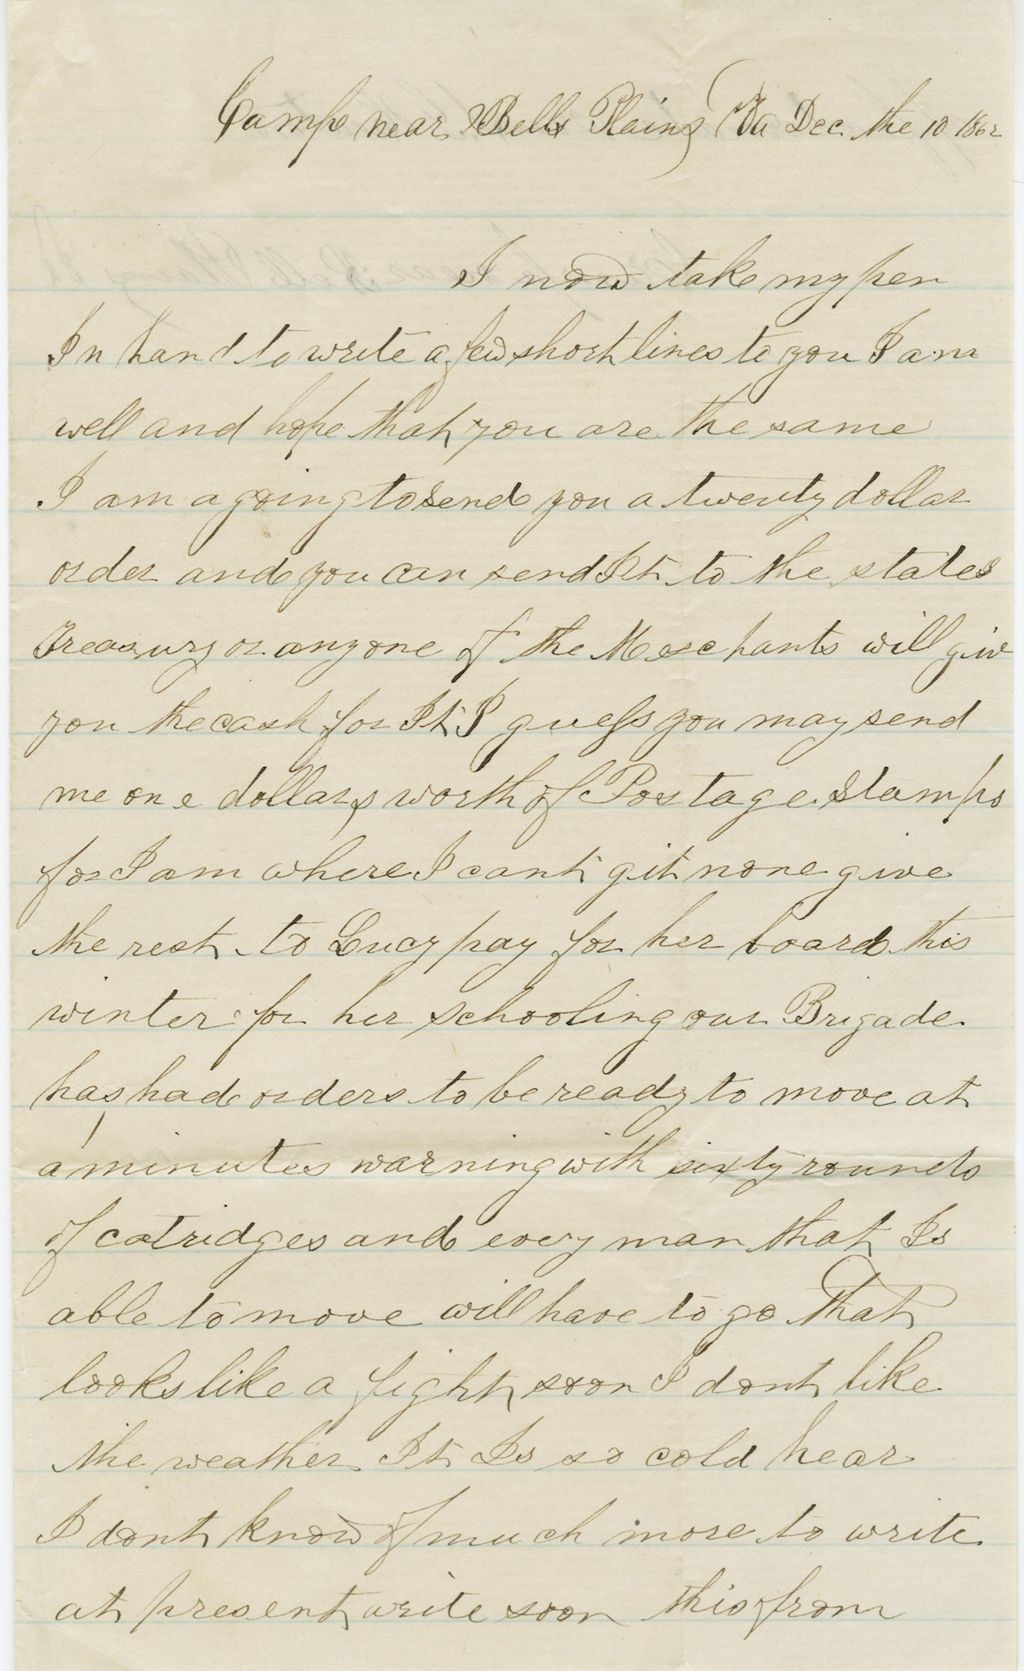 Camp near Bells Plains Va Dec. the 10 1862
I now take my pen
In hand to write a few short lines to you I am
well and hope that you are the same
I am a going to send you a twenty dollar
order and you can send It to the states
treasury or anyone of the Merchants will giv
you the cash for It I guess you may send
me one dollars worth of Postage Stamps
for I am where I cant git none give
the rest to Lucy pay for her board this
winter for her schooling our Brigade
has had orders to be ready to move at
a minutes warning with sixty rounds
of catridges and every man that Is
able to move will have to go That
looks like a fight soon I dont like
the weather It Is so cold hear
I dont know of much more to write
at present write soon this from